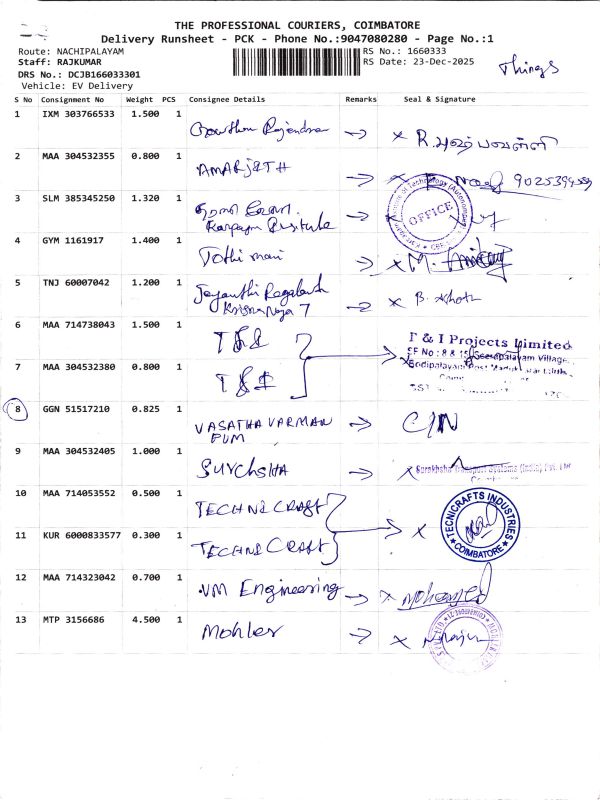 THE PROFESSIONAL COURIERS, COIMBATORE
Delivery Runsheet - PCK - Phone No.:9047080280 - Page No.:1
Route: NACHIPALAYAM
RS No.: 1660333
Staff: RAJKUMAR
RS Date: 23-Dec-2025
Things
DRS No.: DCJB166033301
Vehicle: EV Delivery
S No Consignment No Weight PCS Consignee Details Remarks Seal & Signature
1 IXM 303766533 1.500 1
2 MAA 304532355 0.800 1 AMARJETH 9025394559
3 SLM 385345250 1.320 1
OFFICE
4 GYM 1161917 1.400 1 Jothi mani
5 TNJ 60007042 1.200 1 B. Ashok
6 MAA 714738043 1.500 1 T&I
T & I Projects Limited
SF No : 8 & 15, Seerapalayam Village,
7 MAA 304532380 0.800 1 T&I
8 GGN 51517210 0.825 1 VASATHA VARMAN C/N
PUM
9 MAA 304532405 1.000 1
10 MAA 714053552 0.500 1 TECHNI CRAFT
TECNICRAFTS INDUSTRIES
COIMBATORE
11 KUR 6000833577 0.300 1 TECHNI CRAFT
12 MAA 714323042 0.700 1 VM Engineering Mohamed
13 MTP 3156686 4.500 1 Mohler